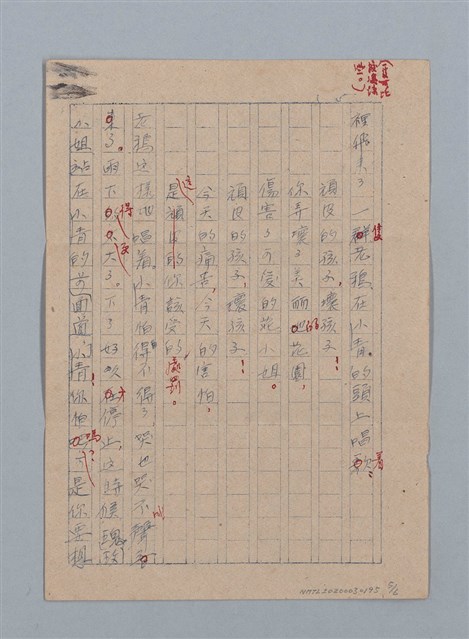 裡飛來了一群隻老鴉在小青的頭上唱歌着：
頑皮的孩子，壞孩子！
你弄壞了美丽地的花園！
傷害了可愛的花小姐。
頑皮的孩子，壞孩子！
今天的痛苦，今天的害怕，
這是頑皮的你該受的處罰。
老鴉這樣地唱着。小青怕得不得了，哭也哭不
來了。雨下得更大了。下了好久才停止，這時候瑰玲
小姐站在小青的前面道：「小青！你怕嗎？是你要想
NMTL20200030195
5/6